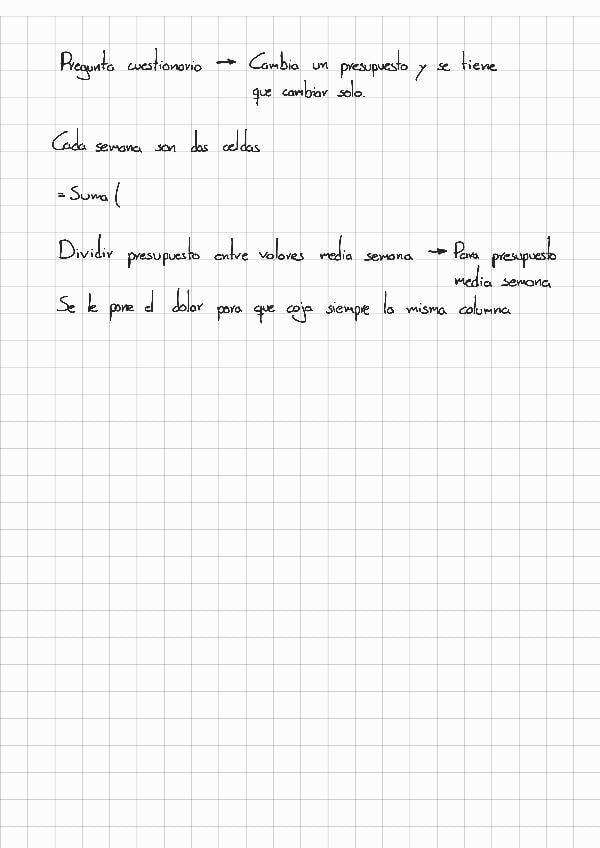 Pregunta cuestionario → Cambia un presupuesto y se tiene
que cambiar solo.
Cada semana son dos celdas
= Suma (
Dividir presupuesto entre valores media semana → Para presupuesto
media semana
Se le pone el dolar para que coja siempre la misma columna